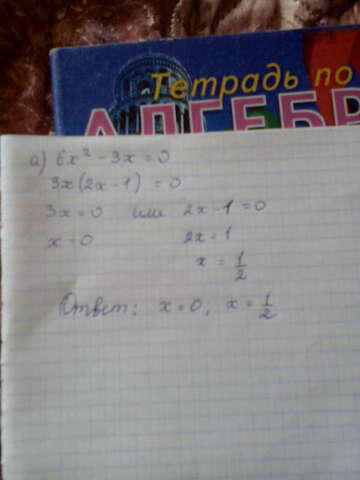 Тетрадь по
АЛГЕБР
а) 6x² - 3x = 0
3x(2x-1) = 0
3x=0 или 2x-1=0
x=0 2x=1
x = 1/2
Ответ: x=0; x = 1/2